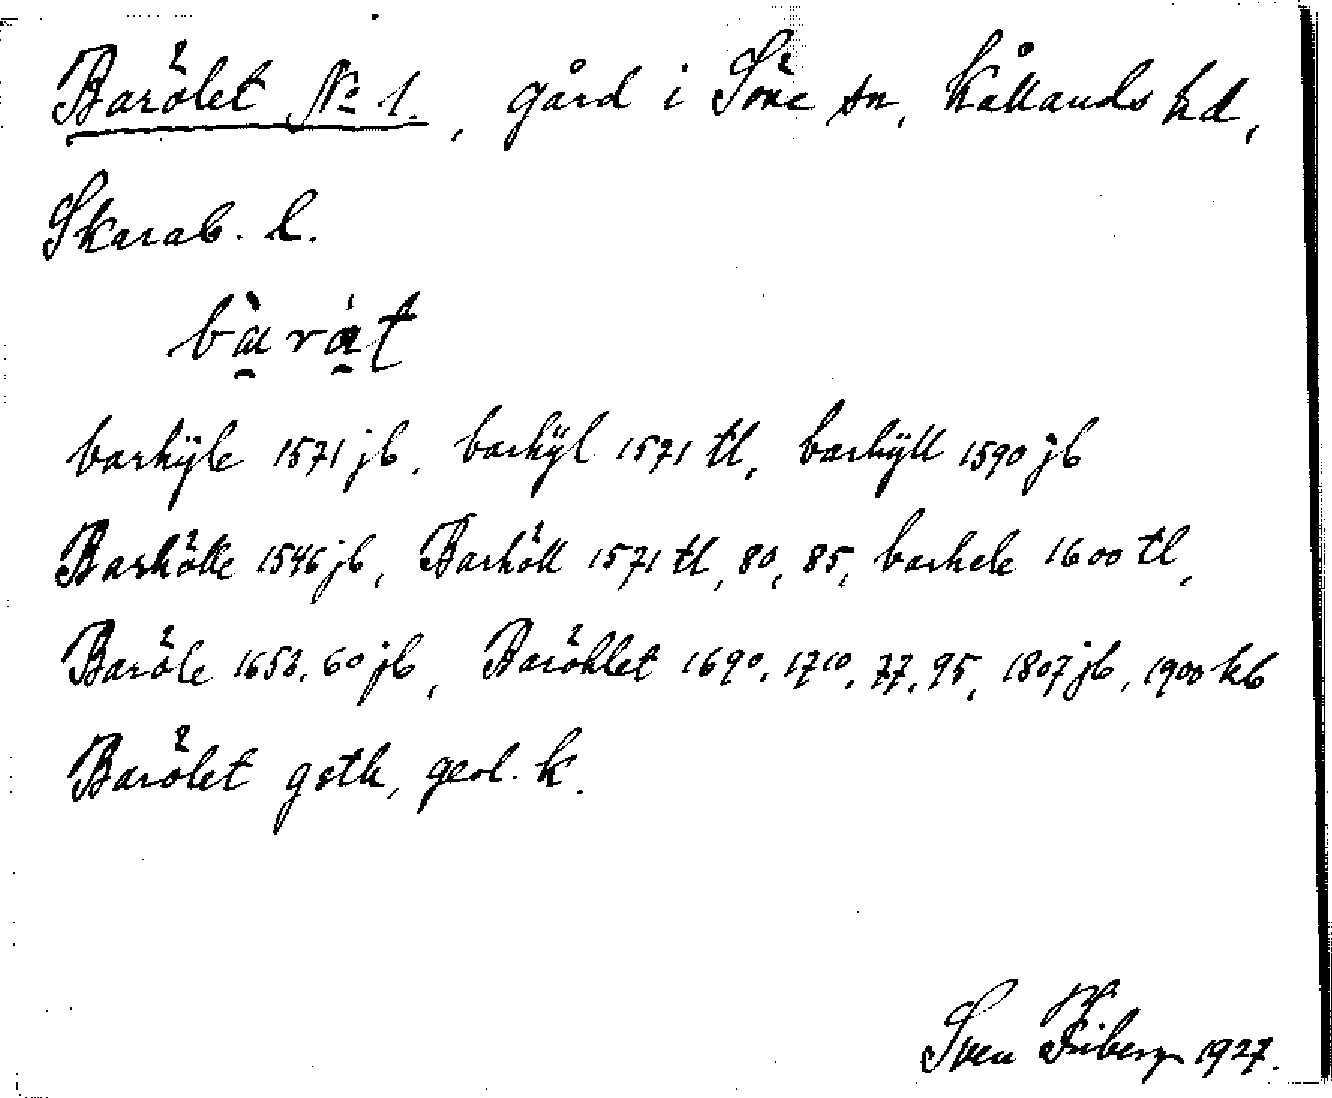 Barölet No 1., gård i Söne sn, Kållands hd,
Skarab. l.
bàràt
barhÿle 1571 jb, barhÿl 1571 tl, barhÿll 1590 jb
Barhölle 1546 jb, Barhöll 1571 tl, 80, 85, barhele 1600 tl,
Baröle 1653, 60 jb, Baröhlet 1690, 1710, 77, 95, 1807 jb, 1900 kb
Barölet gstk, geol. k.
Sven Friberg 1927.